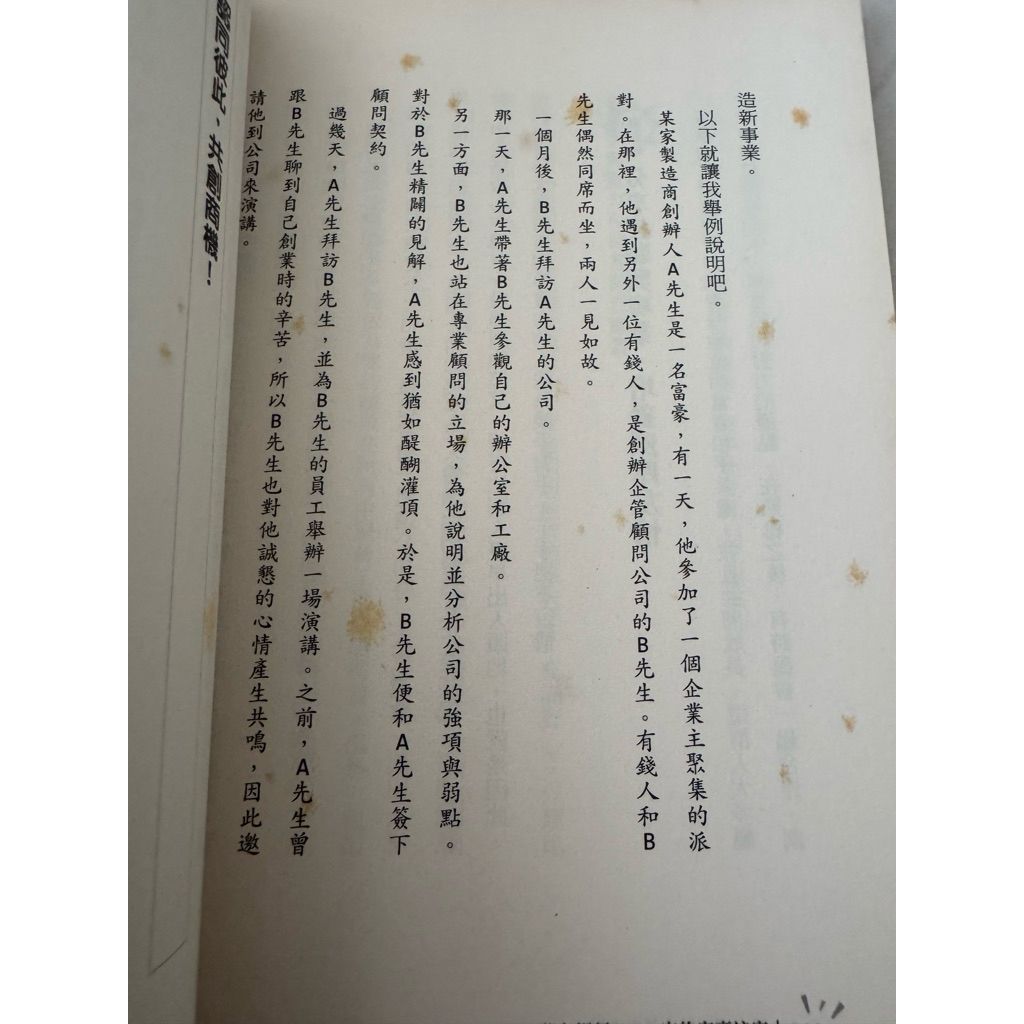 造新事業。
以下就讓我舉例說明吧。
某家製造商創辦人A先生是一名富豪，有一天，他參加了一個企業主聚集的派
對。在那裡，他遇到另外一位有錢人，是創辦企管顧問公司的B先生。有錢人和B
先生偶然同席而坐，兩人一見如故。
一個月後，B先生拜訪A先生的公司。
那一天，A先生帶著B先生參觀自己的辦公室和工廠。
另一方面，B先生也站在專業顧問的立場，為他說明並分析公司的強項與弱點。
對於B先生精闢的見解，A先生感到猶如醍醐灌頂。於是，B先生便和A先生簽下
顧問契約。
過幾天，A先生拜訪B先生，並為B先生的員工舉辦一場演講。之前，A先生曾
跟B先生聊到自己創業時的辛苦，所以B先生也對他誠懇的心情產生共鳴，因此邀
請他到公司來演講。
彼此，共創商機！